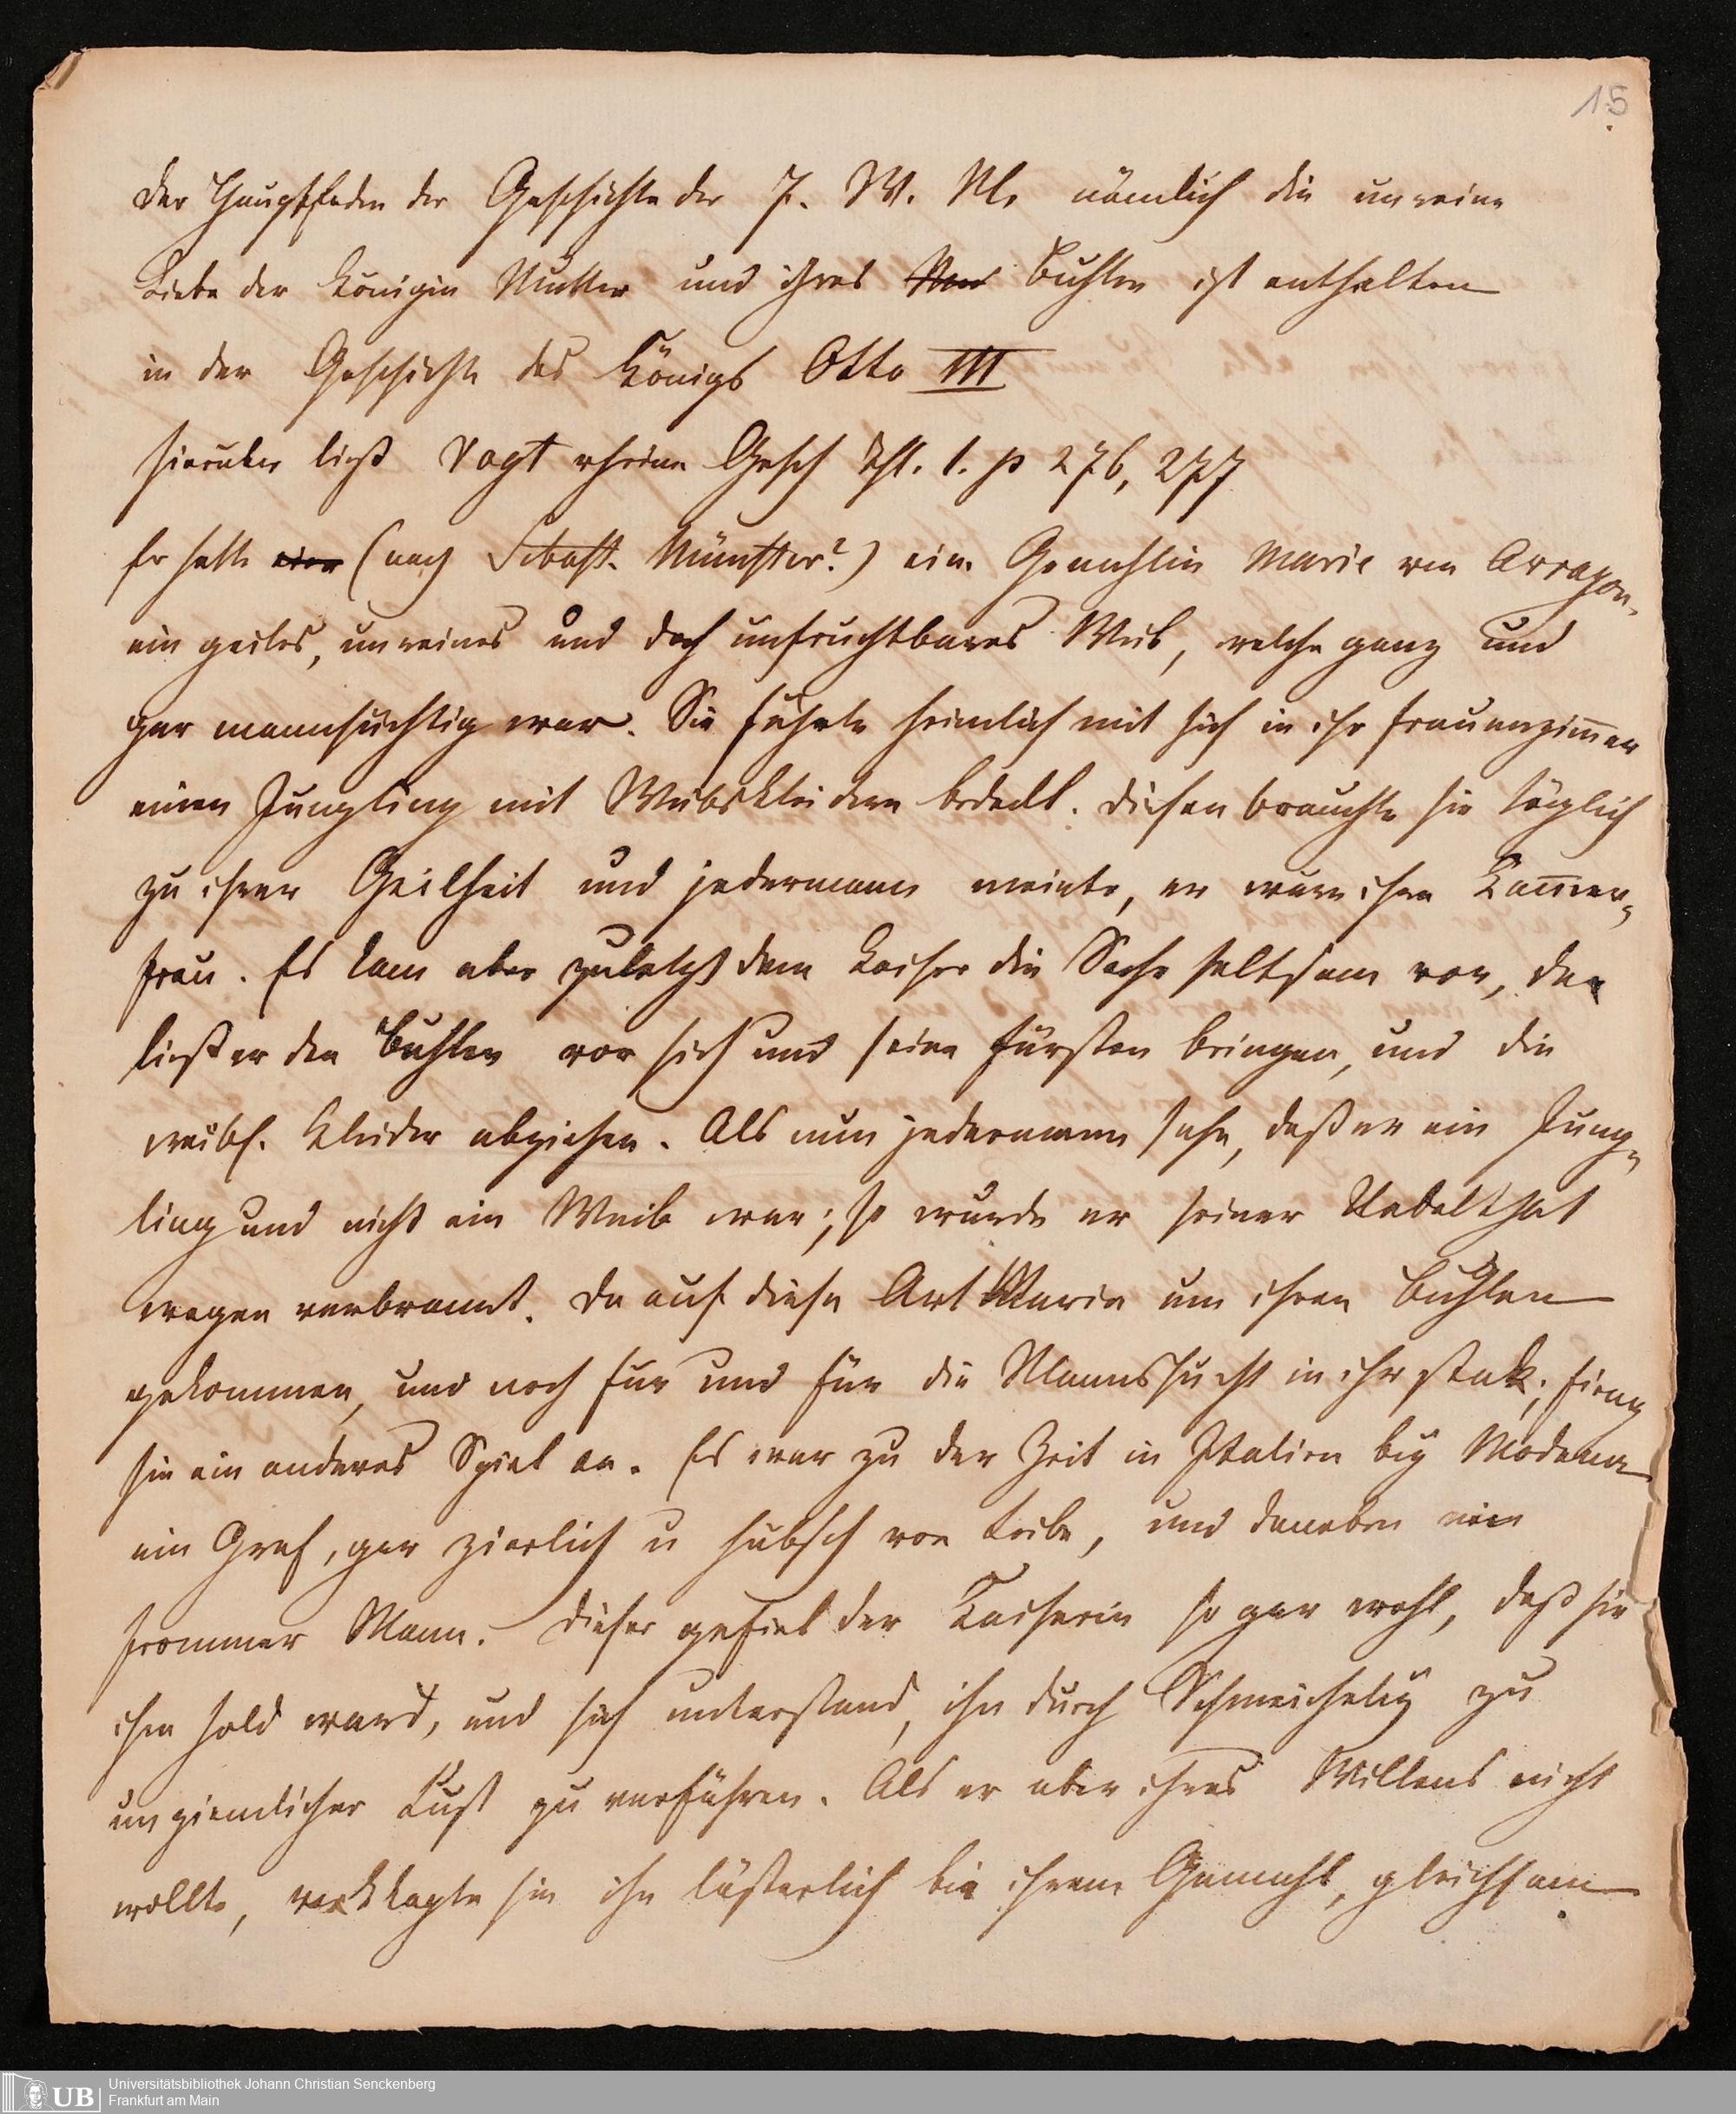 15
Der Hauptfaden der Geschichte der 7. W. M. nämlich die unreine
Liebe der Königin Mutter und ihres Buhlen ist enthalten
in der Geschichte des Königs Otto III
hierüber ließ Vogt rheine Gesch Thl. 1. p 276, 277
Er hatte (nach Sebast. Münster?) eine Gemahlin Marie von Arragon,
ein geiles, unreines und doch unfruchtbares Weib, welche ganz und
gar mannsüchtig war. Sie führte heimlich mit sich in ihr Frauenzim̅er
einen Jüngling mit Weibskleidern bedeckt. Diesen brauchte sie täglich
zu ihrer Geilheit und jedermann meinte, er wäre ihre Kam̅er-
frau. Es kam aber zuletzt dem Kaiser die Sache seltsam vor, da
ließ er den Buhlen vor sich und seine Fürsten bringen, und die
weibl. Kleider abziehen. Als nun jedermann sahe, daß er ein Jüng-
ling und nicht ein Weib war; so wurde er seiner Uebelthat
wegen verbrannt. Da auf diese Art Marie um ihren Buhlen
gekommen, und noch für und für die Mannssucht in ihr stak; fieng
sie ein anderes Spiel an. Es war zu der Zeit in Italien bey Modena
ein Graf, gar zierlich u hübsch von Leibe, und daneben ein
frommer Mann. Dieser gefiel der Kaiserin so gar wohl, daß sie
ihm hold ward, und sich unterstand, ihn durch Schmeicheley zu
unziemlicher Lust zu verführen. Als er aber ihres Willens nicht
wollte, verklagte sie ihn lästerlich bei ihrem Gemahl, gleichsam
UB
Universitätsbibliothek Johann Christian Senckenberg
Frankfurt am Main